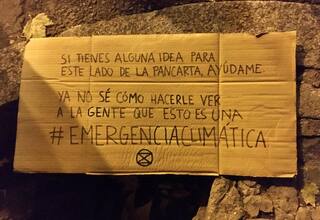 SI TIENES ALGUNA IDEA PARA
ESTE LADO DE LA PANCARTA, AYÚDAME
YA NO SÉ CÓMO HACERLE VER
A LA GENTE QUE ESTO ES UNA
#EMERGENCIACLIMÁTICA